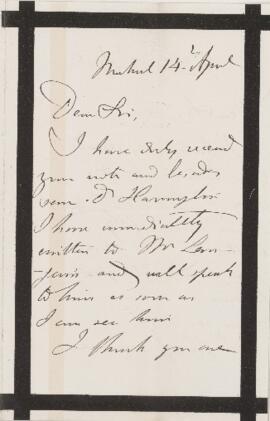 14 April
Dear Sir,
I have duly receed
your note and besides
Dr Harrington
I have immediately
written to Mr
and will speak
to him as soon as
I can see him
I thank you